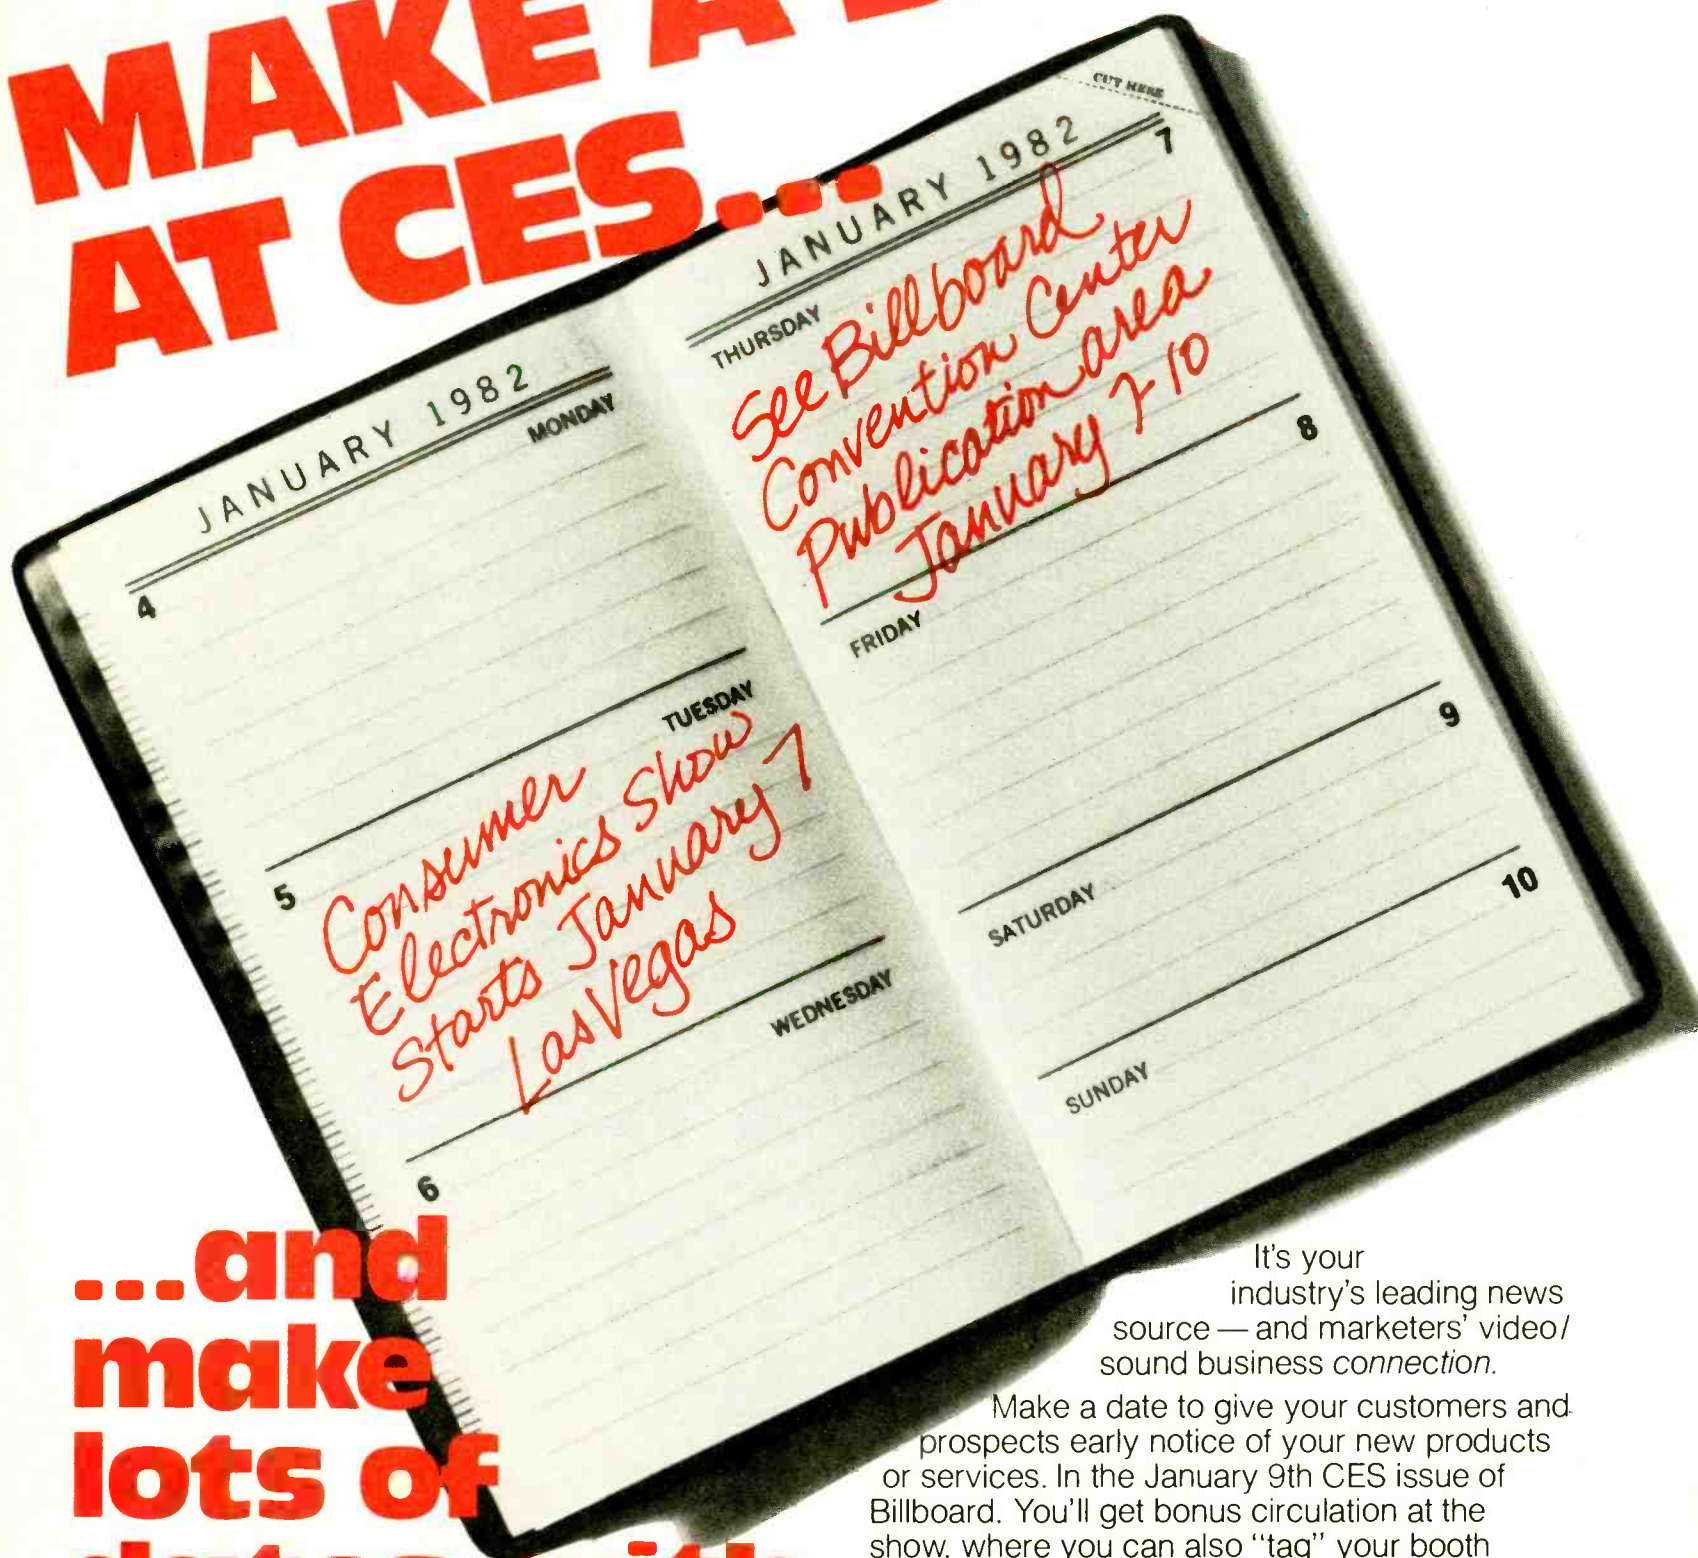 MAKE A
AT CES...
JANUARY 1982
MONDAY
4
TUESDAY
5
Consumer
Electronics Show
Starts January 7
Las Vegas
WEDNESDAY
6
CUT HERE
JANUARY 1982
7
THURSDAY
See Billboard
Convention Center
Publication area
January 7-10
8
FRIDAY
9
SATURDAY
10
SUNDAY
...and
make
lots of
It's your
industry's leading news
source — and marketers' video/
sound business connection.
Make a date to give your customers and
prospects early notice of your new products
or services. In the January 9th CES issue of
Billboard. You'll get bonus circulation at the
show, where you can also "tag" your booth